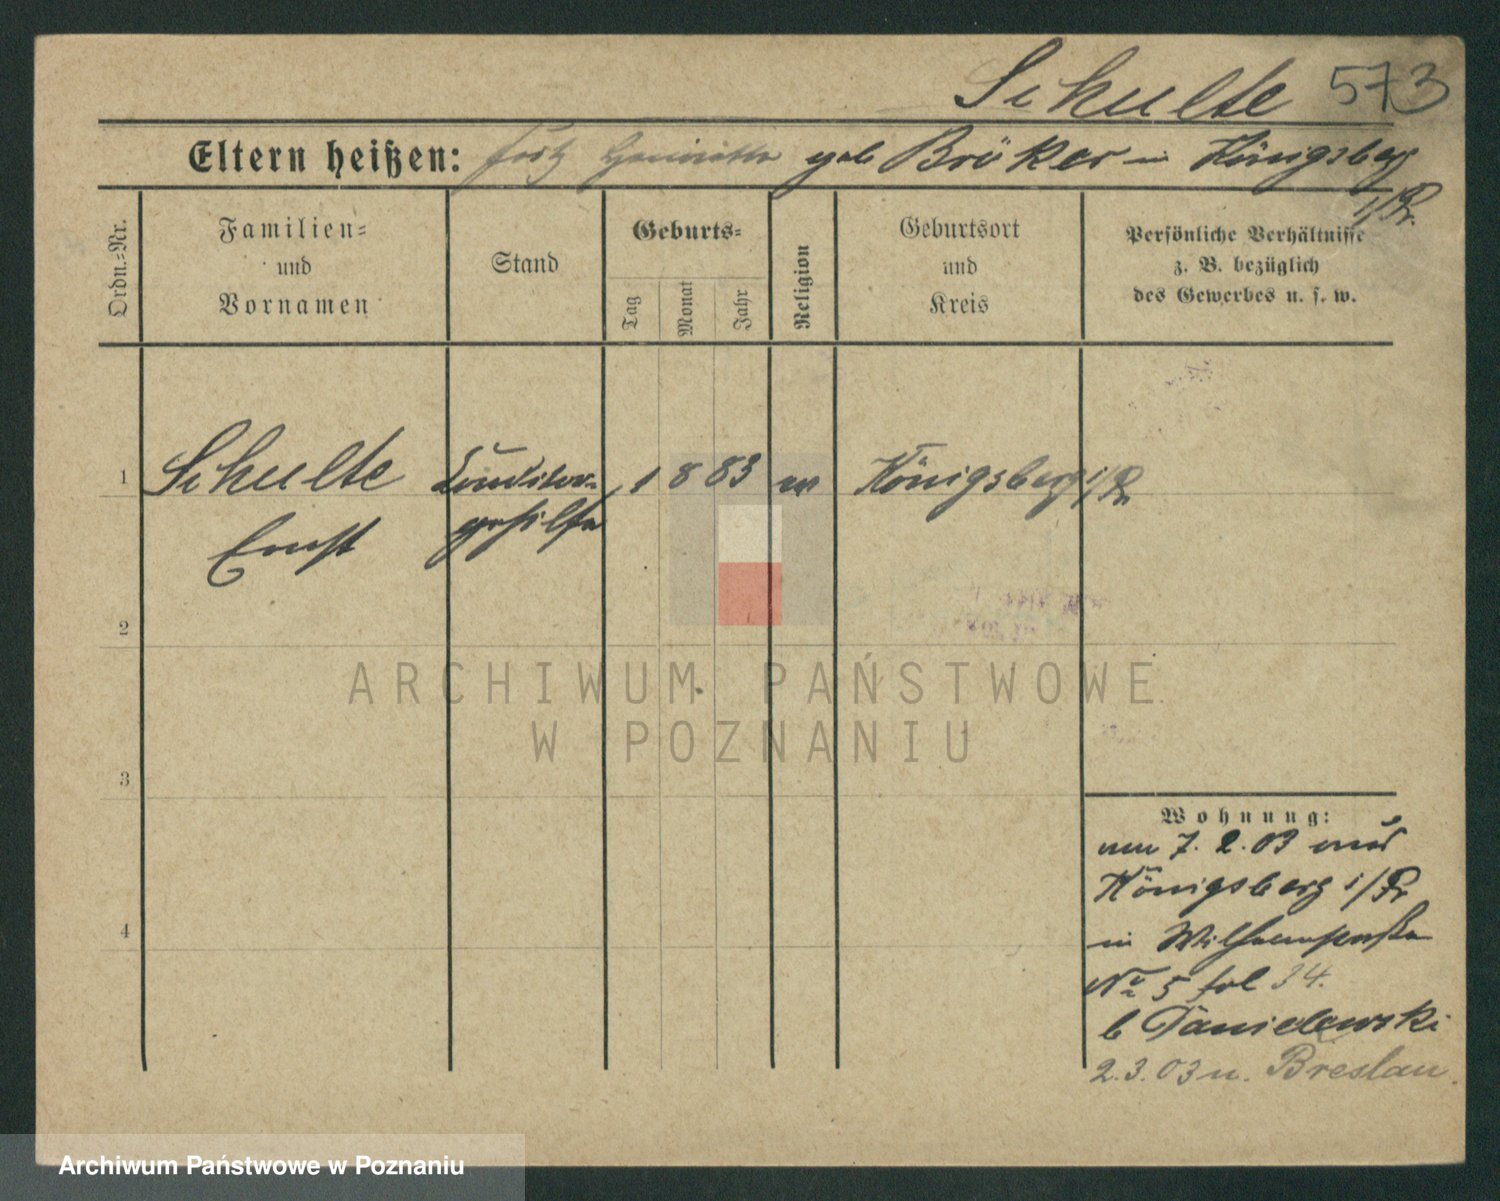 Schulte 573
Eltern heißen: Fritz Henriette geb Bröker in Königsberg
i/Pr.
Ordn.-Nr.
Familien-
und
Vornamen
Stand
Geburts-
Tag
Monat
Jahr
Religion
Geburtsort
und
Kreis
Persönliche Verhältnisse
z. B. bezüglich
des Gewerbes u. s. w.
1 Schulte Conditor- 1 8 83 Königsberg i/Pr
Ernst gehilfe
2
ARCHIWUM PAŃSTWOWE
W POZNANIU
3
Wohnung:
7. 2. 03
Königsberg i/Pr
4
in Wilhelmstraße
No 5 fol 34.
b Danielewski
2.3.03 n. Breslau.
Archiwum Państwowe w Poznaniu